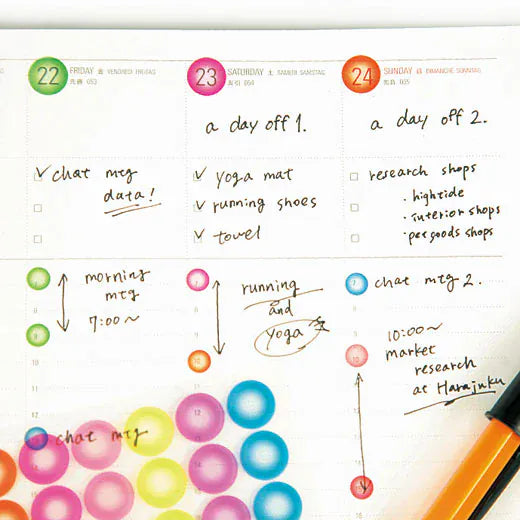 22 FRIDAY 金 VENDREDI FREITAG
先勝 053
23 SATURDAY 土 SAMEDI SAMSTAG
友引 054
24 SUNDAY 日 DIMANCHE SONNTAG
先負 055
a day off 1.
a day off 2.
chat mtg
data!
yoga mat
running shoes
towel
research shops
・hightide
・interior shops
・pet goods shops
morning
mtg
7:00~
running
and
yoga
chat mtg 2.
10:00~
market
research
at Harajuku
chat mtg